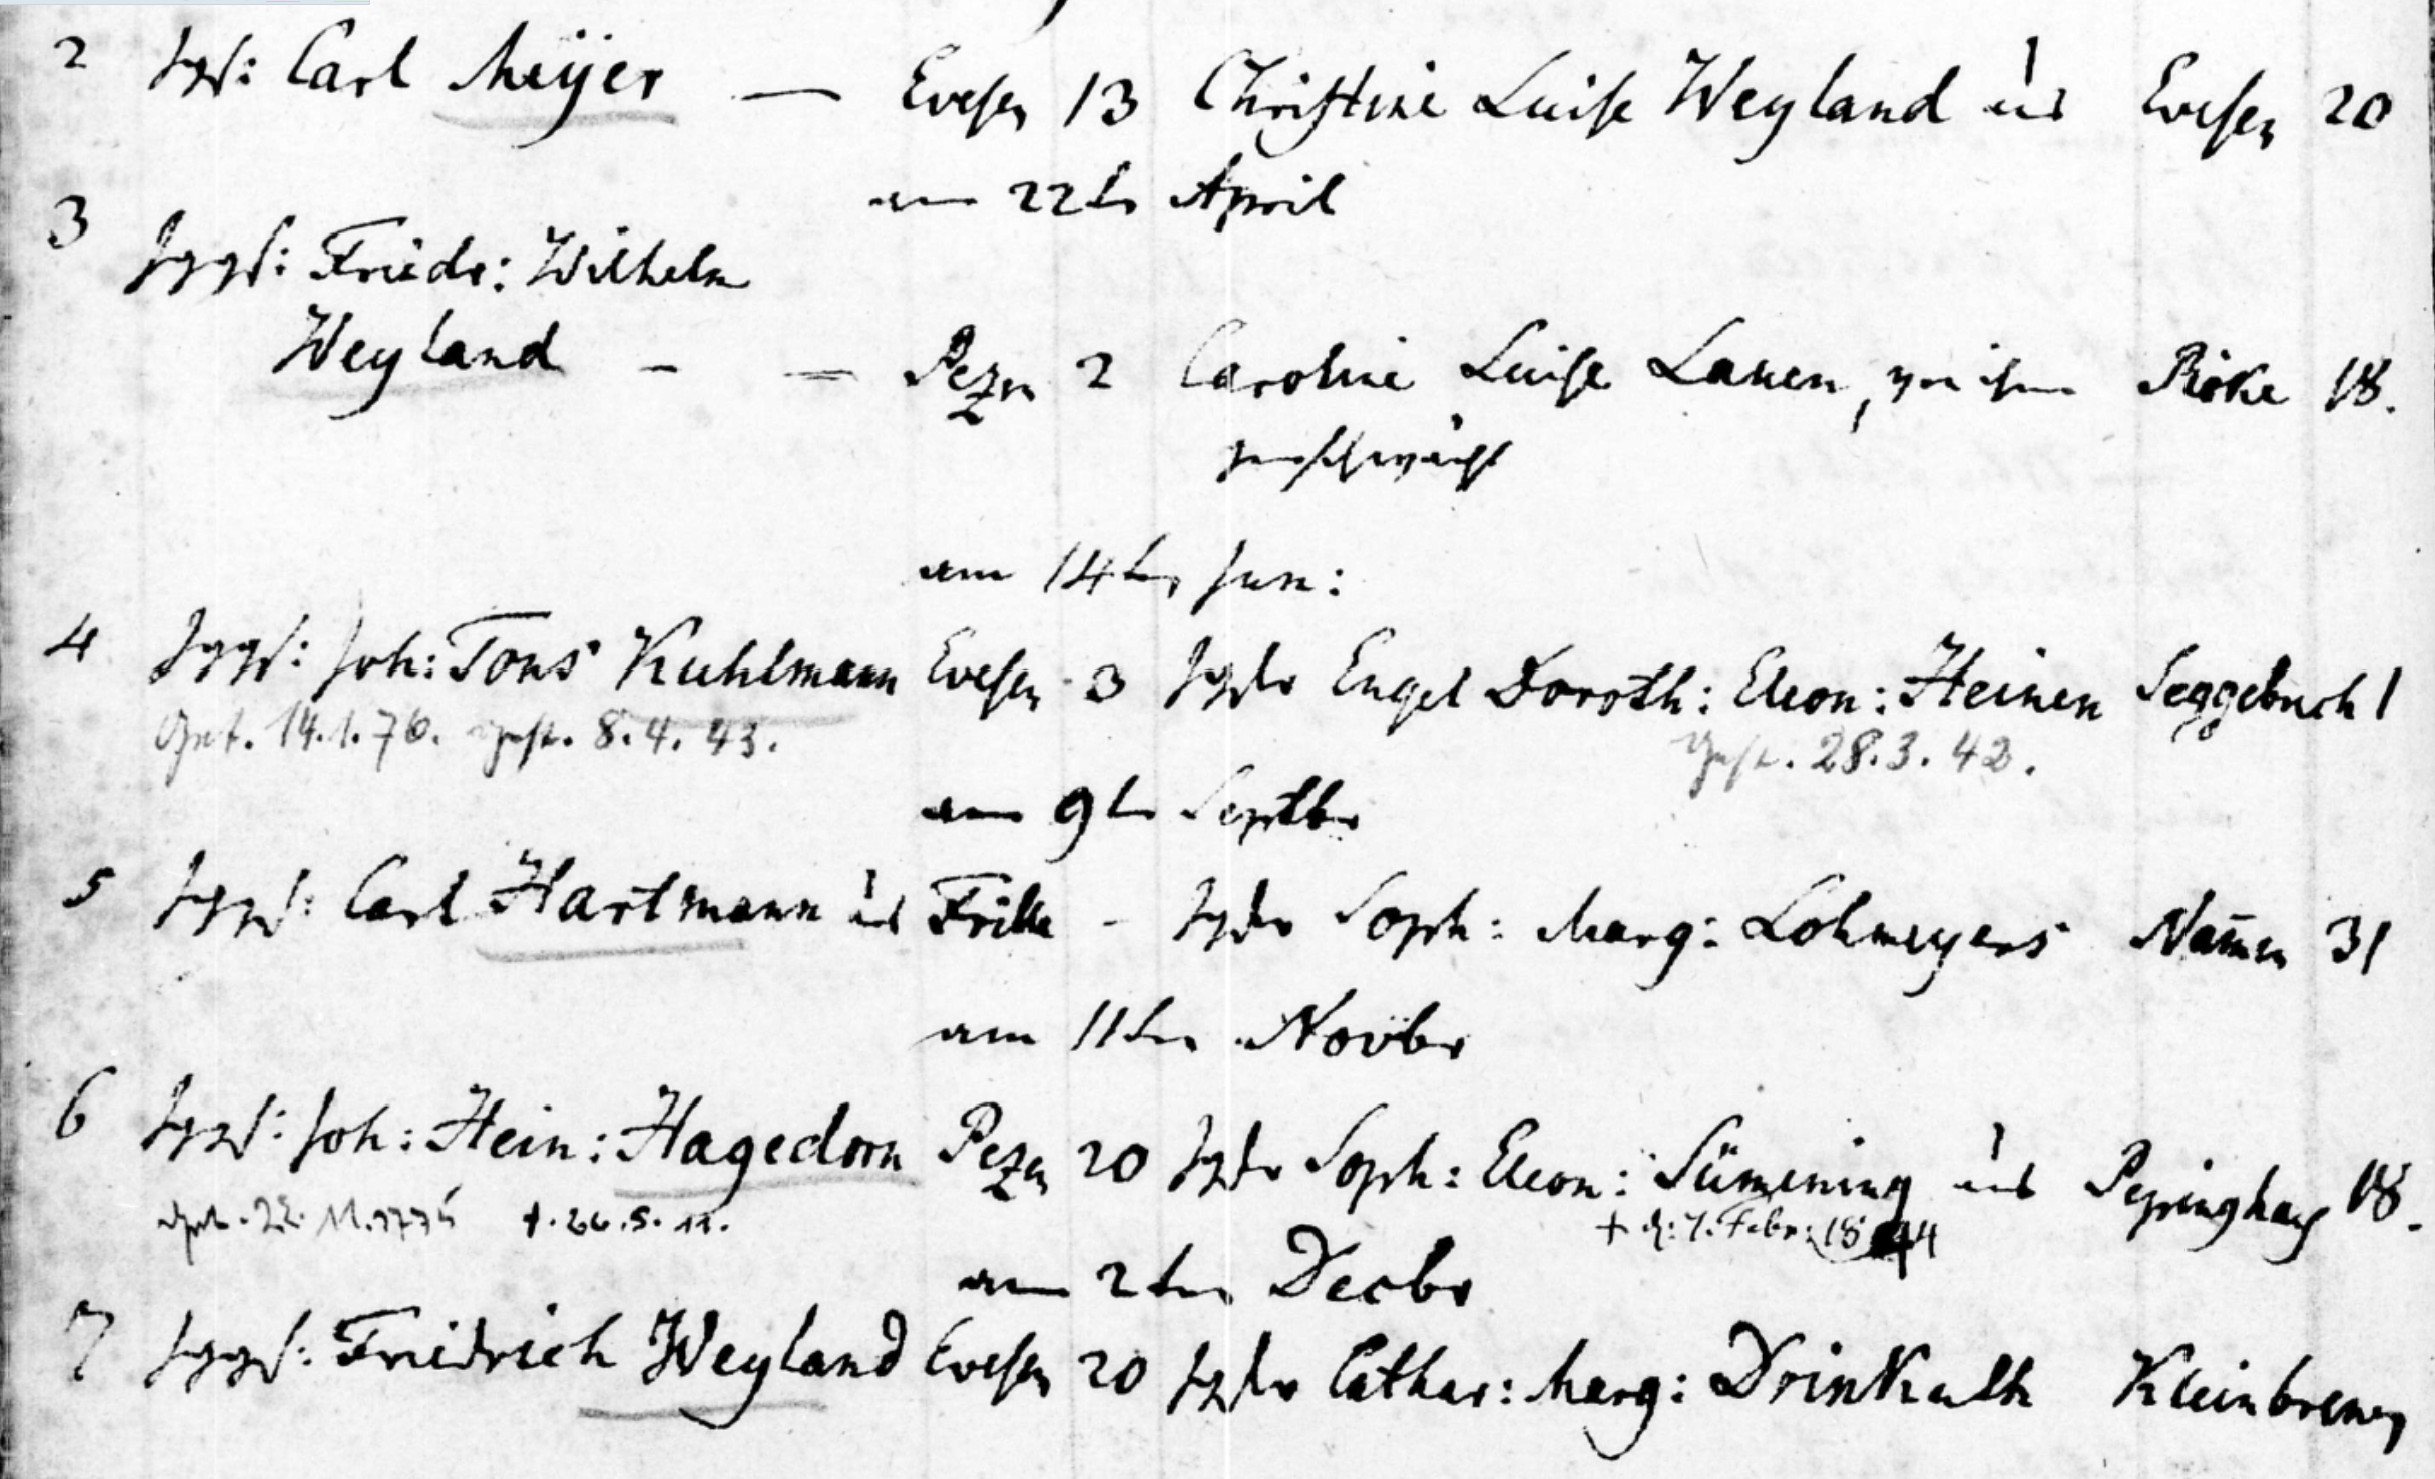 2 Jgs: Carl Meÿer — Evesen 13 Christine Luise Weyland aus Evesen 20
am 22ten April
3 Jggs: Friedr: Wilhelm
Weyland - = Pezen 2 Caroline Luise Lauen, von ihm Röke 18.
geschwächt
am 14ten Jun:
4 Jggs: Joh: Tons Kuhlmann Evesen 3 Jgfr Engel Doroth: Eleon: Heinen Seggebruch 1
Get. 14.1.76. gest. 8.4.43. gest. 28.3.42.
am 9ten Septbr
5 Jggs: Carl Hartmann aus Frille - Jgfr Soph: Marg: Lohmeyers Nam̄en 31
am 11ten Novbr
6 Jggs: Joh: Hein: Hagedorn Pezen 20 Jgfr Soph: Eleon: Sümening aus Pepinghaus 18.
get. 22. 11. † 26.5. † d: 7. Febr: 1844
am 2ten Decbr
7 Jggs: Friedrich Weyland Evesen 20 Jgfr Cathar: Marg: Drinkuth Kleinbremen